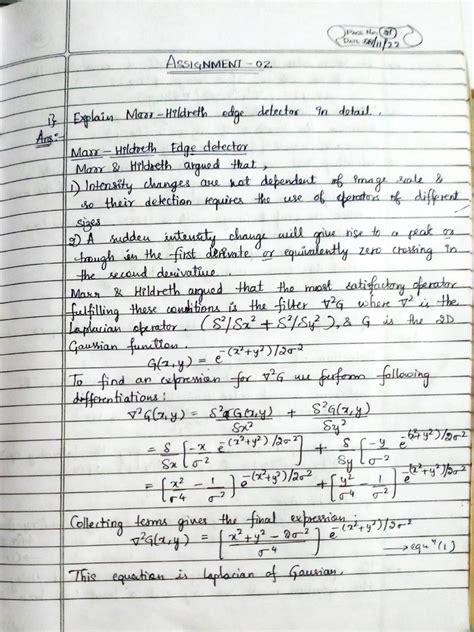 Page No: 01
Date /11/22
ASSIGNMENT - 02
1) Explain Marr-Hildreth edge detector in detail.
Ans:-
Marr - Hildreth Edge detector
Marr & Hildreth argued that,
1) Intensity changes are not dependent of image scale &
so their detection requires the use of operators of different
sizes
2) A sudden intensity change will give rise to a peak or
trough in the first derivate or equivalently zero crossing in
the second derivative.
Marr & Hildreth argued that the most satisfactory operator
fulfilling these conditions is the filter ∇²G where ∇² is the
Laplacian operator. (δ²/δx² + δ²/δy²), & G is the 2D
Gaussian function.
G(x,y) = e^-(x²+y²)/2σ²
To find an expression for ∇²G we perform following
differentiations:
∇²G(x,y) = δ²G(x,y)/δx² + δ²G(x,y)/δy²
= δ/δx [-x/σ² e^-(x²+y²)/2σ²] + δ/δy [-y/σ² e^-(x²+y²)/2σ²]
= [x²/σ⁴ - 1/σ²] e^-(x²+y²)/2σ² + [y²/σ⁴ - 1/σ²] e^-(x²+y²)/2σ²
Collecting terms gives the final expression:
∇²G(x,y) = [x²+y²-2σ²/σ⁴] e^-(x²+y²)/2σ² → eqⁿ(1)
This equation is laplacian of Gaussian.